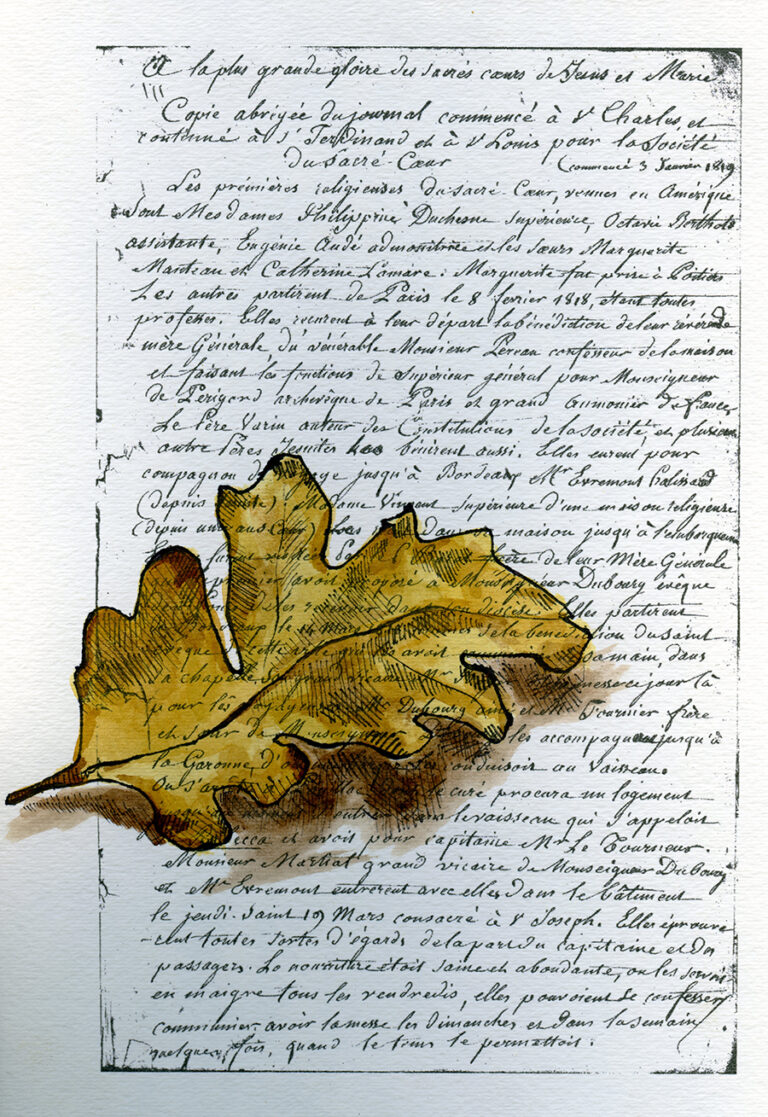 A la plus grande gloire des sacrés cœurs de Jesus et Marie
Copie abrigée du journal commencé à St Charles, et
continué à St Ferdinand et à St Louis pour la Société
du Sacré-Cœur (commencé 3 Janvier 1819
Les prémières religieuses du Sacré Cœur, venues en Amérique
sont Mesdames Philippine Duchesne Supérieure, Octavie Berthold
assistante, Eugénie Audé admonitrice et les sœurs Marguerite
Manteau et Catherine Lamare : Marguerite fut prise à Poitiers
Les autres partirent de Paris le 8 fevrier 1818, étant toutes
professes. Elles reçurent à leur départ la bénédiction de leur révérende
mère Générale du vénérable Monsieur Pereau confesseur de la maison
et faisant les fonctions de Supérieur général pour Monseigneur
de Périgord archevêque de Paris et grand aumonier de France,
Le Père Varin auteur des Constitutions de la société, et plusieurs
autre Pères Jesuites les bénirent aussi. Elles eurent pour
compagnon de jusqu'à Bordeaux Mr Evremont
(depuis Madame Vincent Supérieure d'une maison religieuse
(depuis maison jusqu'à l'embarquement
de leur Mère Générale
premier avoit à Monseigneur Dubourg évêque
dans son diocèse. Elles partirent
le Mars de la bénédiction du Saint
de cette qui avoit sa main, dans
sa chapelle son grand vicaire Mr ce jour là
pour les voyageuses Mr Dubourg ainé et Mr Fournier frère
et sœur de Monseigneur les accompagna jusqu'à
la Garonne d'où conduisoit au Vaisseau.
On s'arrêta le curé procura un logement
le vaisseau qui s'appeloit
et avoit pour capitaine Mr Le Tournieur.
Monsieur Martial grand vicaire de Monseigneur Dubourg
et Mr Evremont entrerent avec elles dans le bâtiment
le jeudi-Saint 19 Mars consacré à St Joseph. Elles éprouve-
rent toutes sortes d'égards de la part du capitaine et des
passagers. La nourriture étoit saine et abondante, on les servit
en maigre tous les vendredis, elles pouvoient se confesser,
communier, avoir la messe les dimanches et dans la semain
quelques fois, quand le tems le permettoit.